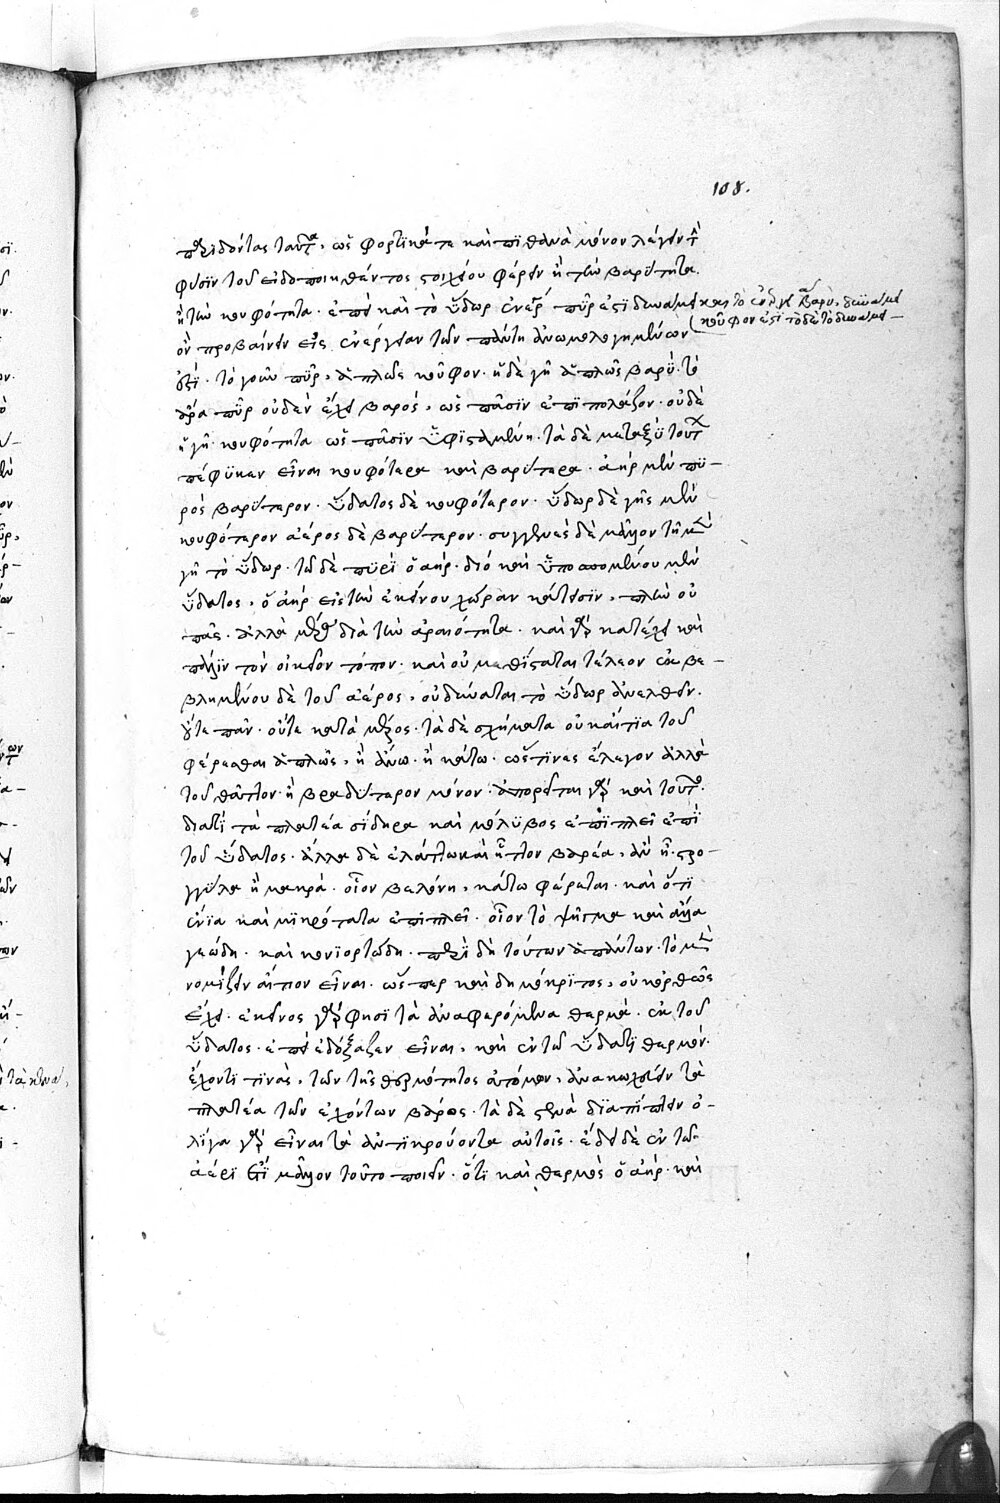 108.
ταῦτα, ὡς φορτικά τε καὶ πιθανὰ μόνον λέγειν
φύσιν τοῦ εἰδοποιηθέντος στοιχείου φέρειν ἢ τὴν βαρύτητα
ἢ τὴν κουφότητα. ἐπεὶ καὶ τὸ ὕδωρ πῦρ ἐστὶ δυνάμει καὶ τὸ
βαρὺ, δυνάμει
κοῦφον ἐστὶ τὸ δὲ τὸ δυνάμει
ὂν προβαίνειν εἰς ἐνέργειαν τῶν πάντη ἀνωμολογημένων
ἐστί. τὸ γοῦν πῦρ, ἁπλῶς κοῦφον. ἡ δὲ γῆ ἁπλῶς βαρύ. τὸ
ἄρα πῦρ οὐδὲν ἔχει βάρος, ὡς πᾶσιν ἐπιπολάζον. οὐδὲ
ἡ γῆ κουφότητα ὡς πᾶσιν ὑφισταμένη. τὰ δὲ μεταξὺ τούτων
πέφυκεν εἶναι κουφότερα καὶ βαρύτερα. ἀὴρ μὲν πυ-
ρὸς βαρύτερον. ὕδατος δὲ κουφότερον. ὕδωρ δὲ γῆς μὲν
κουφότερον ἀέρος δὲ βαρύτερον. συγγενὲς δὲ μᾶλλον τῇ μὲν
γῇ τὸ ὕδωρ. τῶ δὲ πυρὶ ὁ ἀήρ. διὸ καὶ ὑποσπωμένου μὲν
ὕδατος, ὁ ἀὴρ εἰς τὴν ἐκείνου χώραν κάτεισιν, πλὴν οὐ
πᾶς. ἀλλὰ μέρος διὰ τὴν ἀραιότητα. καὶ γὰρ κατέχει καὶ
πάλιν τὸν οἰκεῖον τόπον. καὶ οὐ μεθίσταται τέλεον ἐκβε-
βλημένου δὲ τοῦ ἀέρος, οὐ δύναται τὸ ὕδωρ ἀνελθεῖν.
οὔτε πᾶν. οὔτε κατὰ μέρος. τὰ δὲ σχήματα οὐκ αἴτια τοῦ
φέρεσθαι ἁπλῶς, ἢ ἄνω. ἢ κάτω. ὥς τινες ἔλεγον ἀλλὰ
τοῦ θᾶττον. ἢ βραδύτερον μόνον. ἀπορεῖται γὰρ καὶ τοῦτο.
διατί τὰ πλατέα σίδηρα καὶ μόλυβος ἐπιπλεῖ ἐπὶ
τοῦ ὕδατος. ἄλλα δὲ ἐλάττω καὶ ἧττον βαρέα, ἂν ᾖ στρο-
γγύλα ἢ μακρά. οἷον βελόνη, κάτω φέρεται. καὶ ὅτι
ἔνια καὶ μικρότητα ἐπιπλεῖ. οἷον τὸ ψῆγμα καὶ ἄλλα
γεώδη. καὶ κονιορτώδη. περὶ δὴ τούτων ἁπάντων. τὸ μὲν
νομίζειν αἴτιον εἶναι. ὥσπερ καὶ δημόκριτος, οὐκ ὀρθῶς
ἔχει. ἐκεῖνος γάρ φησι τὰ ἀναφερόμενα θερμὰ. ἐκ τοῦ
ὕδατος. ἐπεὶ ἐδόξαζεν εἶναι, καὶ ἐν τῶ ὕδατι θερμὸν.
ἔχοντι τινὰς, τῶν τῆς θερμότητος ἀτόμων, ἀνακωχεύειν τὰ
πλατέα τῶν ἐχόντων βάρος. τὰ δὲ στενὰ διαπίπτειν ὀ-
λίγα γὰρ εἶναι τὰ ἀντικρούοντα αὐτοῖς. ἔδει δὲ ἐν τῶ
ἀέρι ἔτι μᾶλλον τοῦτο ποιεῖν. ὅτι καὶ θερμὸς ὁ ἀήρ. καὶ